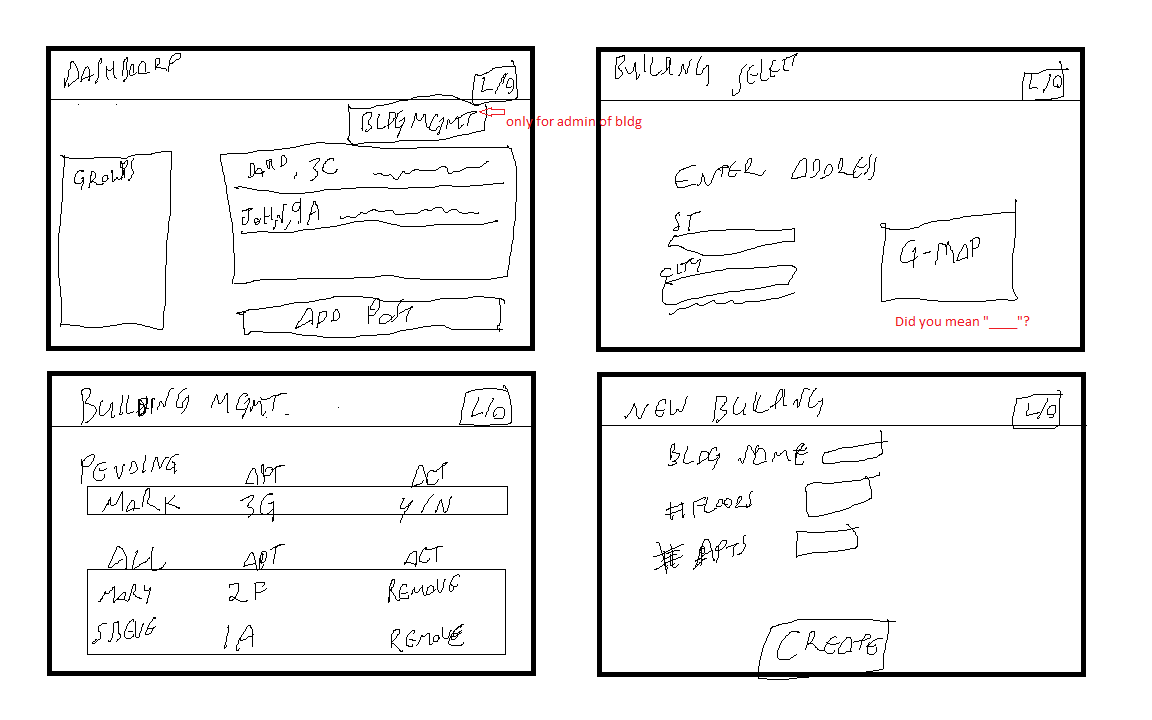 DASHBOARD
L/O
BLDG MGMT
only for admin of bldg
GROUPS
DAVID, 3C
JOHN, 9A
ADD POST
BUILDING SELECT
L/O
ENTER ADDRESS
ST
CITY
G-MAP
Did you mean "____"?
BUILDING MGMT.
L/O
PENDING APT ACT
MARK 3G Y/N
ALL APT ACT
MARY 2F REMOVE
STEVE 1A REMOVE
NEW BUILDING
L/O
BLDG NAME
# FLOORS
# APTS
CREATE